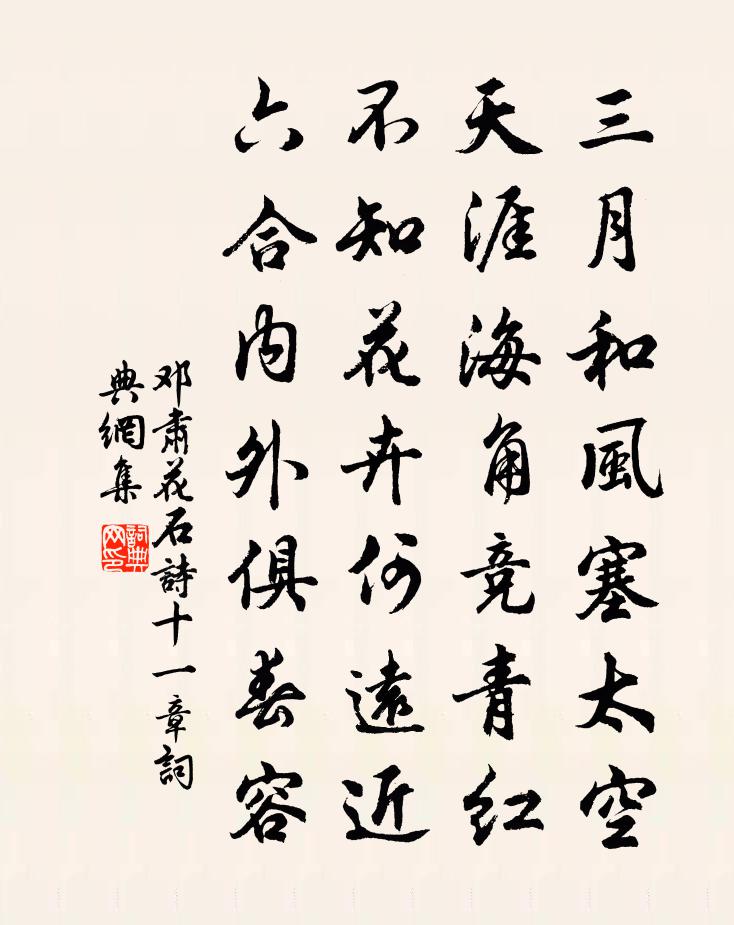 三月和風塞太空
天涯海角竞青红
不知花卉何遠近
六合内外俱春容
邓肅花石詩十一章詞
典網集
詞典网印